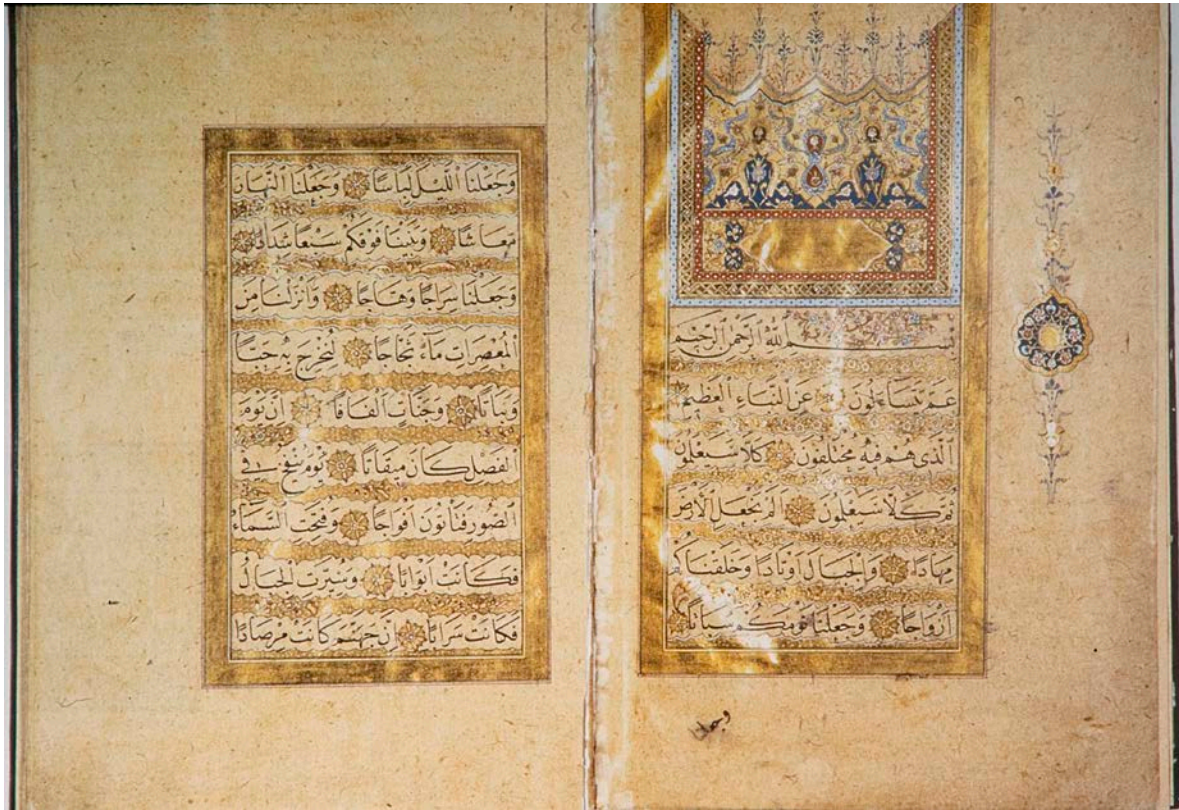 بِسْمِ اللهِ الرَّحْمٰنِ الرَّحِيمِ
عَمَّ يَتَسَاءَلُونَ عَنِ النَّبَاءِ الْعَظِيمِ
اَلَّذِى هُمْ فِيهِ مُخْتَلِفُونَ كَلَّا سَيَعْلَمُونَ
ثُمَّ كَلَّا سَيَعْلَمُونَ اَلَمْ نَجْعَلِ الْاَرْضَ
مِهَادًا وَالْجِبَالَ اَوْتَادًا وَخَلَقْنَاكُمْ
اَزْوَاجًا وَجَعَلْنَا نَوْمَكُمْ سُبَاتًا
وجعلنا
وَجَعَلْنَا اللَّيْلَ لِبَاسًا وَجَعَلْنَا النَّهَارَ
مَعَاشًا وَبَنَيْنَا فَوْقَكُمْ سَبْعًا شِدَادًا
وَجَعَلْنَا سِرَاجًا وَهَّاجًا وَاَنْزَلْنَا مِنَ
الْمُعْصِرَاتِ مَاءً ثَجَّاجًا لِنُخْرِجَ بِهِ حَبًّا
وَنَبَاتًا وَجَنَّاتٍ اَلْفَافًا اِنَّ يَوْمَ
الْفَصْلِ كَانَ مِيقَاتًا يَوْمَ يُنْفَخُ فِى
الصُّورِ فَتَأْتُونَ اَفْوَاجًا وَفُتِحَتِ السَّمَاءُ
فَكَانَتْ اَبْوَابًا وَسُيِّرَتِ الْجِبَالُ
فَكَانَتْ سَرَابًا اِنَّ جَهَنَّمَ كَانَتْ مِرْصَادًا